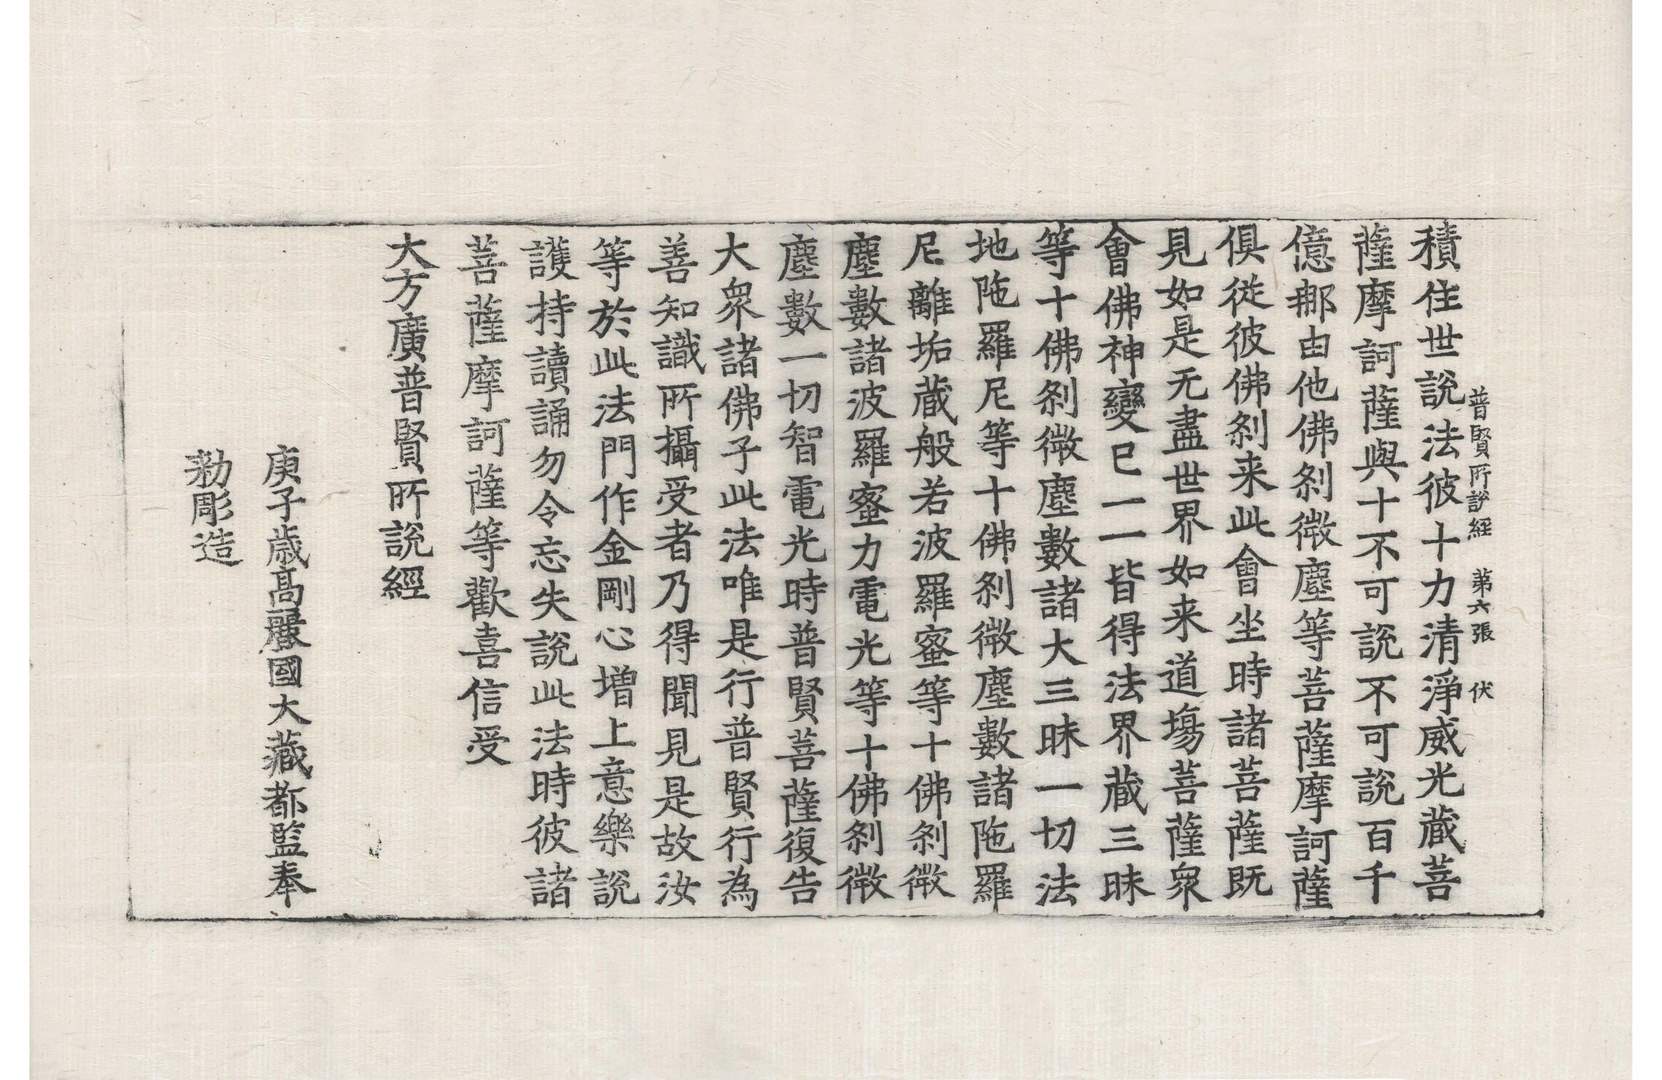 普賢所說經　第六張　伏
積住世說法彼十力清淨威光蔵菩
薩摩訶薩與十不可說不可說百千
億那由他佛刹微塵等菩薩摩訶薩
俱從彼佛刹来此會坐時諸菩薩旣
見如是无盡世界如来道場菩薩衆
會佛神變已一一皆得法界蔵三昧
等十佛刹微塵數諸大三昧一切法
地陁羅尼等十佛刹微塵數諸陁羅
尼離垢蔵般若波羅蜜等十佛刹微
塵數諸波羅蜜力電光等十佛刹微
塵數一切智電光時普賢菩薩復告
大衆諸佛子此法唯是行普賢行為
善知識所攝受者乃得聞見是故汝
等於此法門作金剛心增上意樂說
護持讀誦勿令忘失說此法時彼諸
菩薩摩訶薩等歡喜信受
大方廣普賢所說經
庚子歳高麗國大藏都監奉
勑彫造